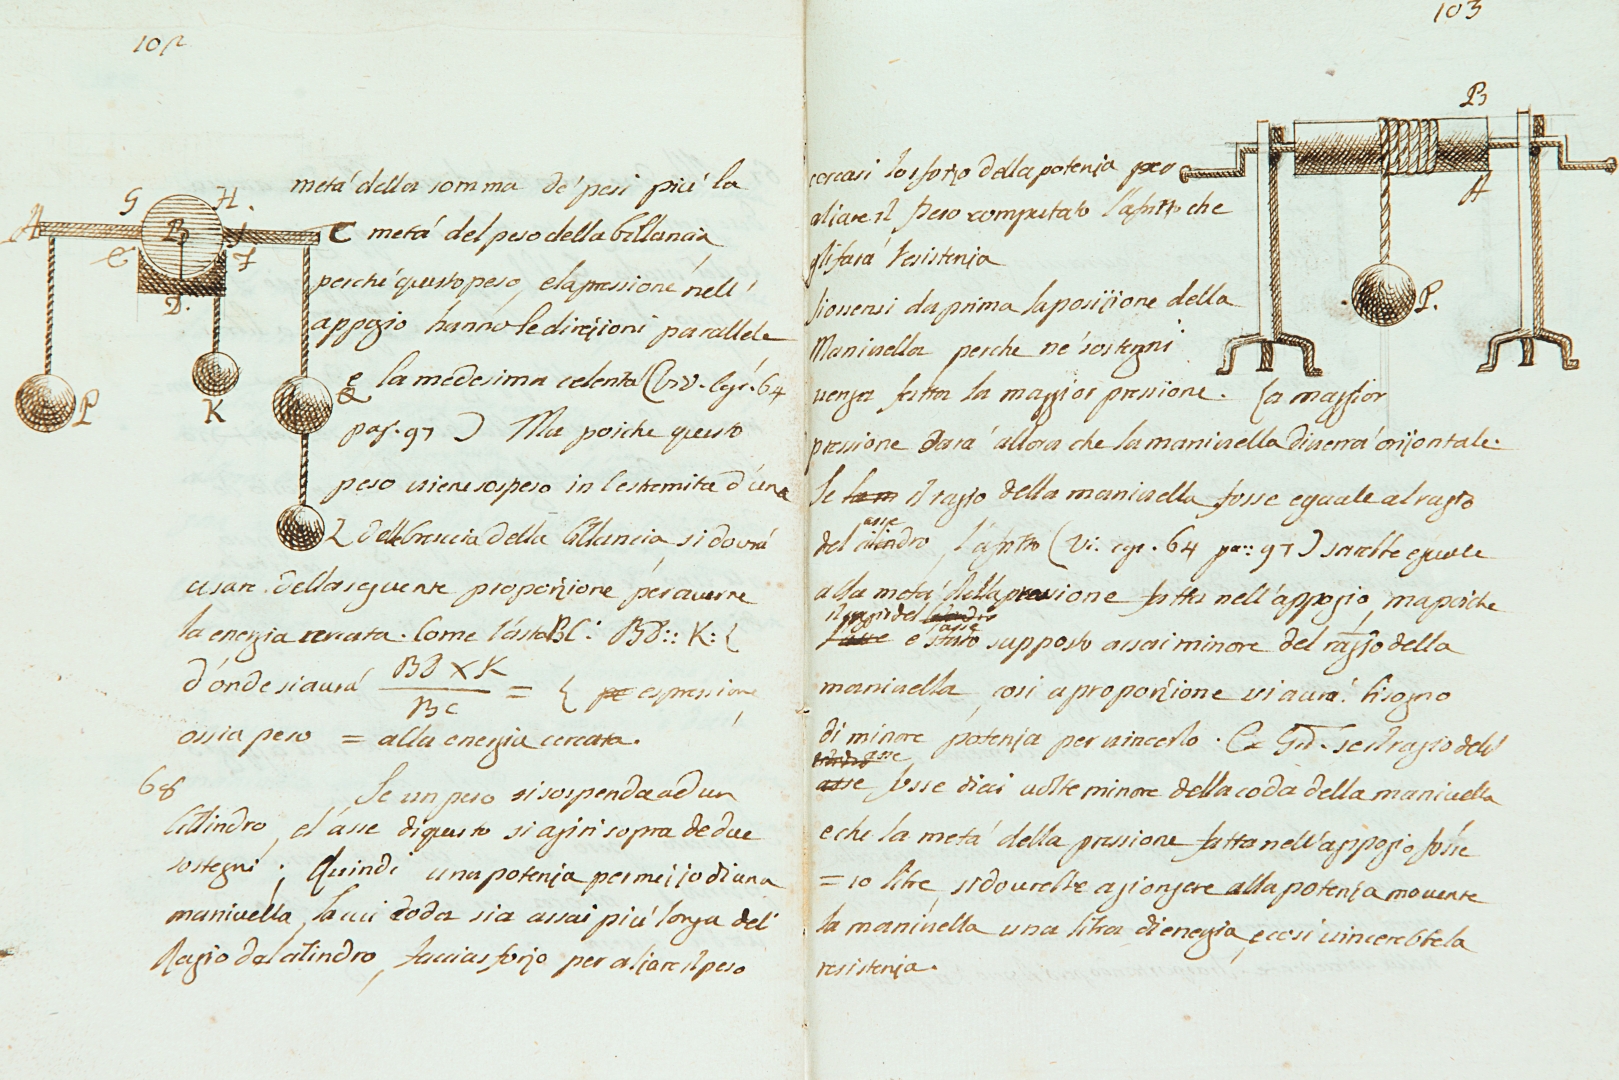 102
metá della somma de' pesi piú la
metá del peso della billancia
perché questo peso, e la pressione nell'
appogio hanno le direzioni parallele
e la medesima celerita (Viv. leg. 64
pag. 97) Ma poiche questo
peso viene sospeso in l'estremita d'una
delle braccia della billancia si dovrá
usare della seguente proporzione per averne
la energia cercata. Come l'asta BC: BD:: K: L
d'onde si avrá BD X K / BC = L espressione
ossia peso = alla energia cercata.
68
Se un peso si sospenda ad un
Cilindro, el' asse di questo si agiri sopra de due
sostegni; Quindi una potenza per mezzo di una
manivella, la cui coda sia assai piú longa del'
Ragio del cilindro, faccia sforzo per alzare il peso
A G H I C E B F D P K Q L
103
cercasi lo sforzo della potenza per
alzare il Peso computato l'afritto che
gli fará l'esistenza
si osservi da prima la posizione della
Manivella perche ne' sostegni
venga fatta la maggior pressione. La maggior
pressione Sará allora che la manivella diverrá orizontale.
Se lam il ragio della manivella fosse eguale al ragio
asse
del cilindro, l'afritto (Vi. leg. 64 pag: 97) sarebbe eguale
alla metá della pressione fatta nell'appogio, ma poiche
il ragio del cilindro
l'asse e stato supposto assai minore del ragio della
manivella, cosi a proporzione vi avrá bisogno
di minore potenza per vincerlo. Ex Gr. se il ragio dell'
asse
asse fosse dieci volte minore della coda della manivella
e che la metá della pressione fatta nell'appogio fosse
= 10 libre, si dovrebbe agiongere alla potenza movente
la manivella una libra di energia, e cosi vincerebbe la
resistenza.
B A P.